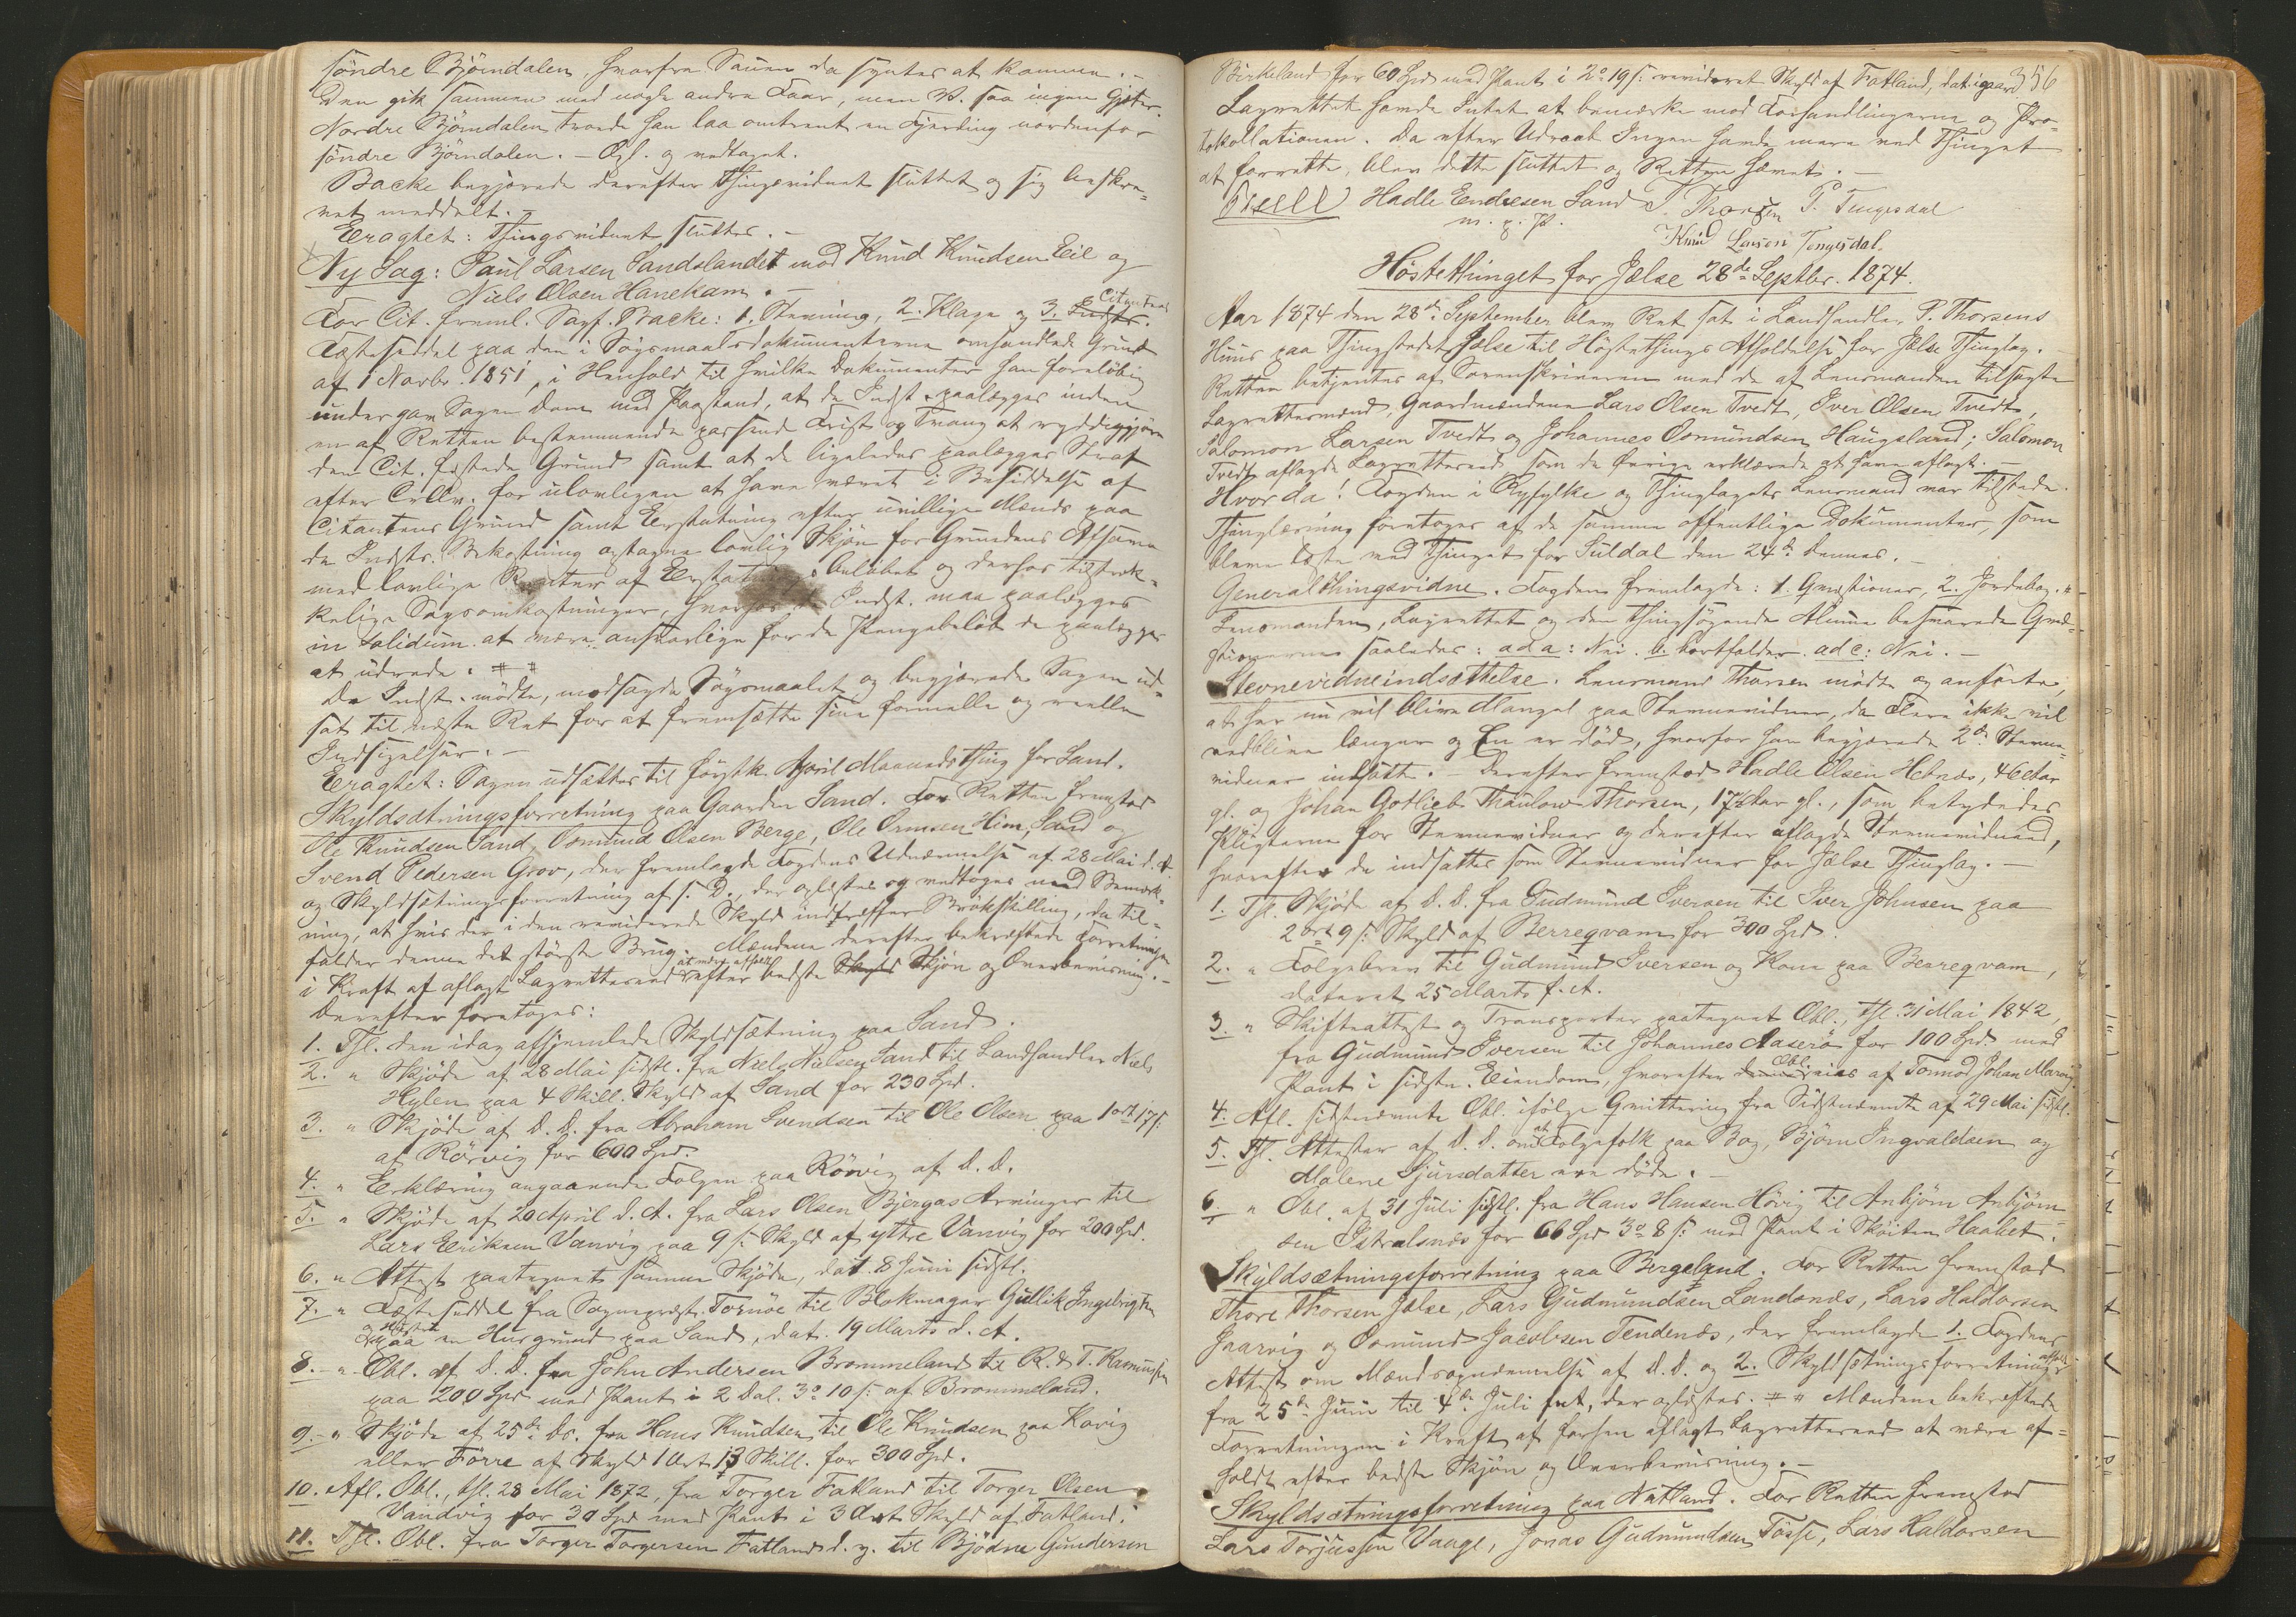 söndre Björndalen, hvorfra Sauen da syntes at komme. –
Den gik sammen med nogle andre Faar, men V. saa ingen Gjæter.
Nordre Björndalen troede han laa omtrent en Fjerding nordenfor
söndre Björndalen. – Opl. og vedtaget.
Backe begjærede derefter Thingsvidnet sluttet og sig beskre-
vet meddelt. –
Eragtet: Thingsvidnet sluttes. –
Ny Sag: Paul Larsen Sandslandet mod Knud Knudsen Eie og
Niels Olsen Hanekam. –
For Cit. freml. Sagf. Backe: 1. Stevning, 2. Klage og 3. Citantens
Fæsteseddel paa den i Søgsmaalsdokumenterne omhandlede Grund
af 1 Novbr. 1851, i Henhold til hvilke Dokumenter han foreløbig
undergav Sagen Dom med Paastand, at de Indst. paalægges inden
en af Retten bestemmende passende Frist og Tvang at ryddiggjøre
den Cit. fæstede Grund samt at de ligeledes paalægges Straf
efter Crllv. for ulovligen at have været i Besiddelse af
Citantens Grund samt Erstatning efter uvillige Mænds paa
de Indsts. Bekostning optagne lovlig Skjøn for Grundens Afsavn
med lovlige Renter af Erstat beløbet og derhos tilstræk-
kelige Sagsomkostninger, hvorhos Indst. maa paalægges
in solidum at være ansvarlige for de Pengebeløb de paalægges
at udrede. # #
De Indst. mødte, modsagde Søgsmaalet og begjærede Sagen ud-
sat til næste Ret for at fremsætte sine formelle og reelle
Indsigelser. –
Eragtet: Sagen udsættes til førstk. April Maanedsthing for Sand.
Skyldsætningsforretning paa Gaarden Sand. For Retten fremstod
Ole Knudsen Sand, Osmund Olsen Berge, Ole Ormsen Him, Sand og
Svend Pedersen Grov, der fremlagde Fogdens Udnævnelse af 28 Mai d. A.
og Skyldsætningsforretning af s. D., der oplæstes og vedtoges med Bemærk-
ning, at hvis der i den reviderede Skyld indtræffer Brøkskilling, da til-
falder denne det største Brug. Mændene derefter bekræftede Forretningen
i Kraft af aflagt Lagretteseed at være afholdt efter bedste Skjøn og Overbevisning. –
Derefter foretoges:
1. Thl. den idag afhjemlede Skyldsætning paa Sand.
2. " Skjøde af 28 Mai sidstl. fra Niels Nielsen Sand til Landhandler Niels
Hylen paa 4 Skill. Skyld af Sand for 230 Spd.
3. " Skjøde af d. D. fra Abraham Svendsen til Ole Olsen paa 1 ort 17 s:
af Rörvig for 600 Spd.
4. " Erklæring angaaende Folgen paa Rörvig af d. D.
5. " Skjøde af 20 April d. A. fra Lars Olsen Bjergas Arvinger til
Lars Eriksen Vanvig paa 9 s: Skyld af ytre Vanvig for 200 Spd.
6. " Attest paategnet samme Skjøde, dat. 8 Juni sidstl.
7. " Fæsteseddel fra Sognepræst Tornöe til Blokmager Gullik Ingebrigtsen
og Hustru paa en Husgrund paa Sand, dat. 19 Marts d. A.
8. " Obl. af d. D. fra John Andersen Brommeland til R. & T. Rasmussen
paa 200 Spd med Pant i 2 Dal. 3 o 10 s: af Brommeland.
9. " Skjøde af 25 de ds. fra Hans Knudsen til Ole Knudsen paa Kavig
eller Förre af Skyld 1 Ort 13 Skill. for 300 Spd.
10. Afl. Obl., thl. 28 Mai 1872, fra Torger Fatland til Torger Olsen
Vandvig for 30 Spd med Pant i 3 Ort Skyld af Fatland.
11. Thl. Obl. fra Torger Torgersen Fatland d. y. til Bjödne Gundersen
Birkeland for 60 Spd med Pant i 2 o 19 s: revideret Skyld af Fatland, dat. igaar 356
Lagrettet havde Intet at bemærke mod Forhandlingerne og Pro-
tokollationen. Da efter Udraab Ingen havde mere ved Thinget
at forrette, blev dette sluttet og Retten hævet. –
Hadle Endresen Sand T. Thorsen P. Tengesdal
m. p. P.
Knud Larsen Tengesdal.
Höstethinget for Jelse 28de Septbr. 1874.
Aar 1874 den 28de September blev Ret sat i Landhandler P. Thorsens
Huus paa Thingstedet Jelse til Høstethings Afholdelse for Jelse Thinglag. –
Retten betjentes af Sorenskriveren med de af Lensmanden tilsagte
Lagrettemænd, Gaardmændene Lars Olsen Tvedt, Iver Olsen Tvedt,
Salomon Larsen Tvedt og Johannes Osmundsen Haugsland; Salomon
Tvedt aflagde Lagretteseed, som de Øvrige erklærede at have aflagt. –
Hvor da! Fogden i Ryfylke og Thinglagets Lensmand var tilstede.
Thinglæsning foretoges af de samme offentlige Dokumenter, som
bleve læste ved Thinget for Suldal den 24de dennes. –
Generalthingsvidne. Fogden fremlagde: 1. Qvæstioner, 2. Jordebog. " –
Lensmanden, Lagrettet og den thingsøgende Almue besvarede Qvæ-
stionerne saaledes: ad a: Nei. b. bortfalder. ad c: Nei. –
Stevnevidneindsættelse. Lensmand Thorsen mødte og anførte,
at her nu vil blive Mangel paa Stevnevidner, da Flere ikke vil
vedblive længer og En er død, hvorfor han begjærede 2de Stevne-
vidner indsatte. – Derefter fremstod Hadle Olsen Hebnæs, 46 Aar
gl. og Johan Gotlieb Thaulow Thorsen, 17 1/2 Aar gl., som betydedes
Pligterne for Stevnevidner og derefter aflagde Stevnevidneed,
hvorefter de indsattes som Stevnevidner for Jelse Thinglag. –
1. Thl. Skjøde af d. D. fra Gudmund Iversen til Iver Johnsen paa
2 ort 9 s: Skyld af Berreqvam for 300 Spd.
2. " Folgebrev til Gudmund Iversen og Kone paa Berreqvam,
dateret 25 Marts f. A.
3. " Skifteattest og Transporter paategnet Obl., thl. 31 Mai 1842,
fra Gudmund Iversen til Johannes Aaserö for 100 Spd. med
Pant i sidste Eiendom, hvorefter Obl. eies af Tormod Johan Marvig.
4. Afl. sidstnævnte Obl. ifølge Qvittering fra Sidstnævnte af 29 Mai sidstl.
5. Thl. Attester af d. D. om at Folgefolk paa Bog, Björn Ingvaldsen og
Malene Sjursdatter ere døde. –
6. " Obl. af 31 Juli sidstl. fra Hans Hansen Hövig til Anbjörn Anbjörn-
sen for 66 Spd 3 o 8 s: med Pant i Skøiten Haabet.
Skyldsætningsforretning paa Bergeland. For Retten fremstod
Thore Thorsen Jelse, Lars Gudmundsen Landsnæs, Lars Haldorsen
Jaarvig og Osmund Jacobsen Tendenæs, der fremlagde 1. Fogdens
Attest om Mændsopnævnelse af d. D. og 2. Skyldsætningsforretning afholdt
fra 25de Juni til 4de Juli sidstl., der oplæstes. # # Mændene bekræftede
Forretningen i Kraft af forhen aflagt Lagretteseed at være af-
holdt efter bedste Skjøn og Overbevisning. –
Skyldsætningsforretning paa Natland. For Retten fremstod
Lars Torjussen Vaage, Jonas Gudmundsen Tösse, Lars Haldorsen